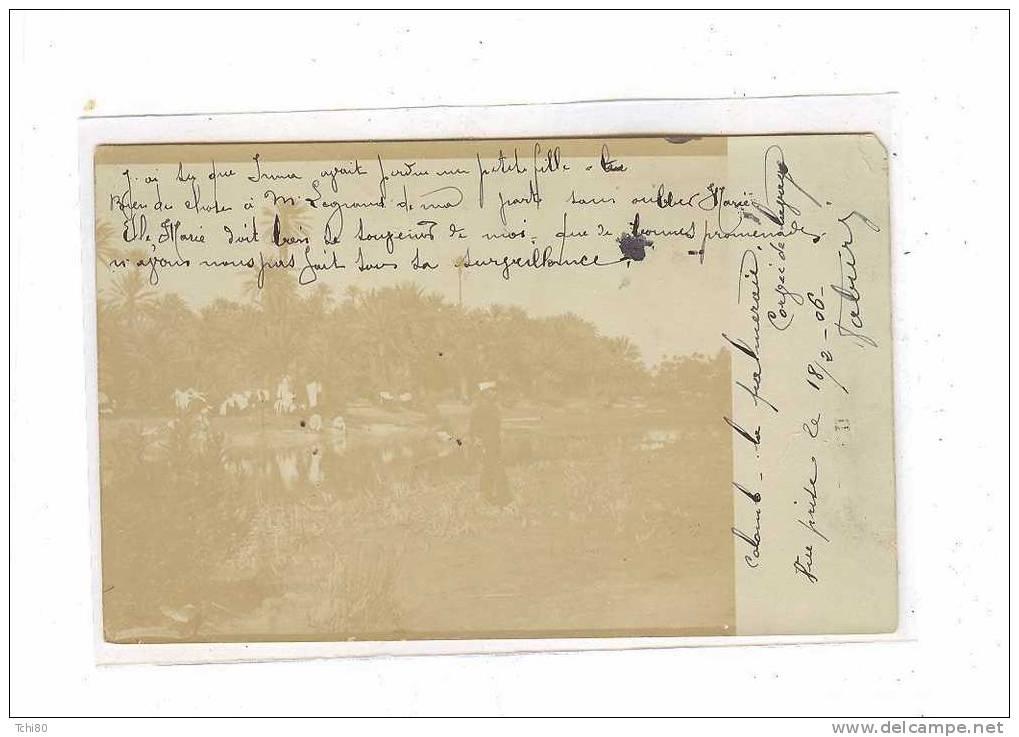 J'ai su que Irma avait perdu une petite fille
Bien des choses à Mr Legrand de ma part sans oublier Marie
Elle Marie doit bien se souvenir de moi. que de bonnes promenades
n'avons nous pas fait sous sa surveillance.
Colomb - la palmeraie,
Corvée de lavage
Vue prise le 18/2-06-
Tchi80
www.delcampe.net